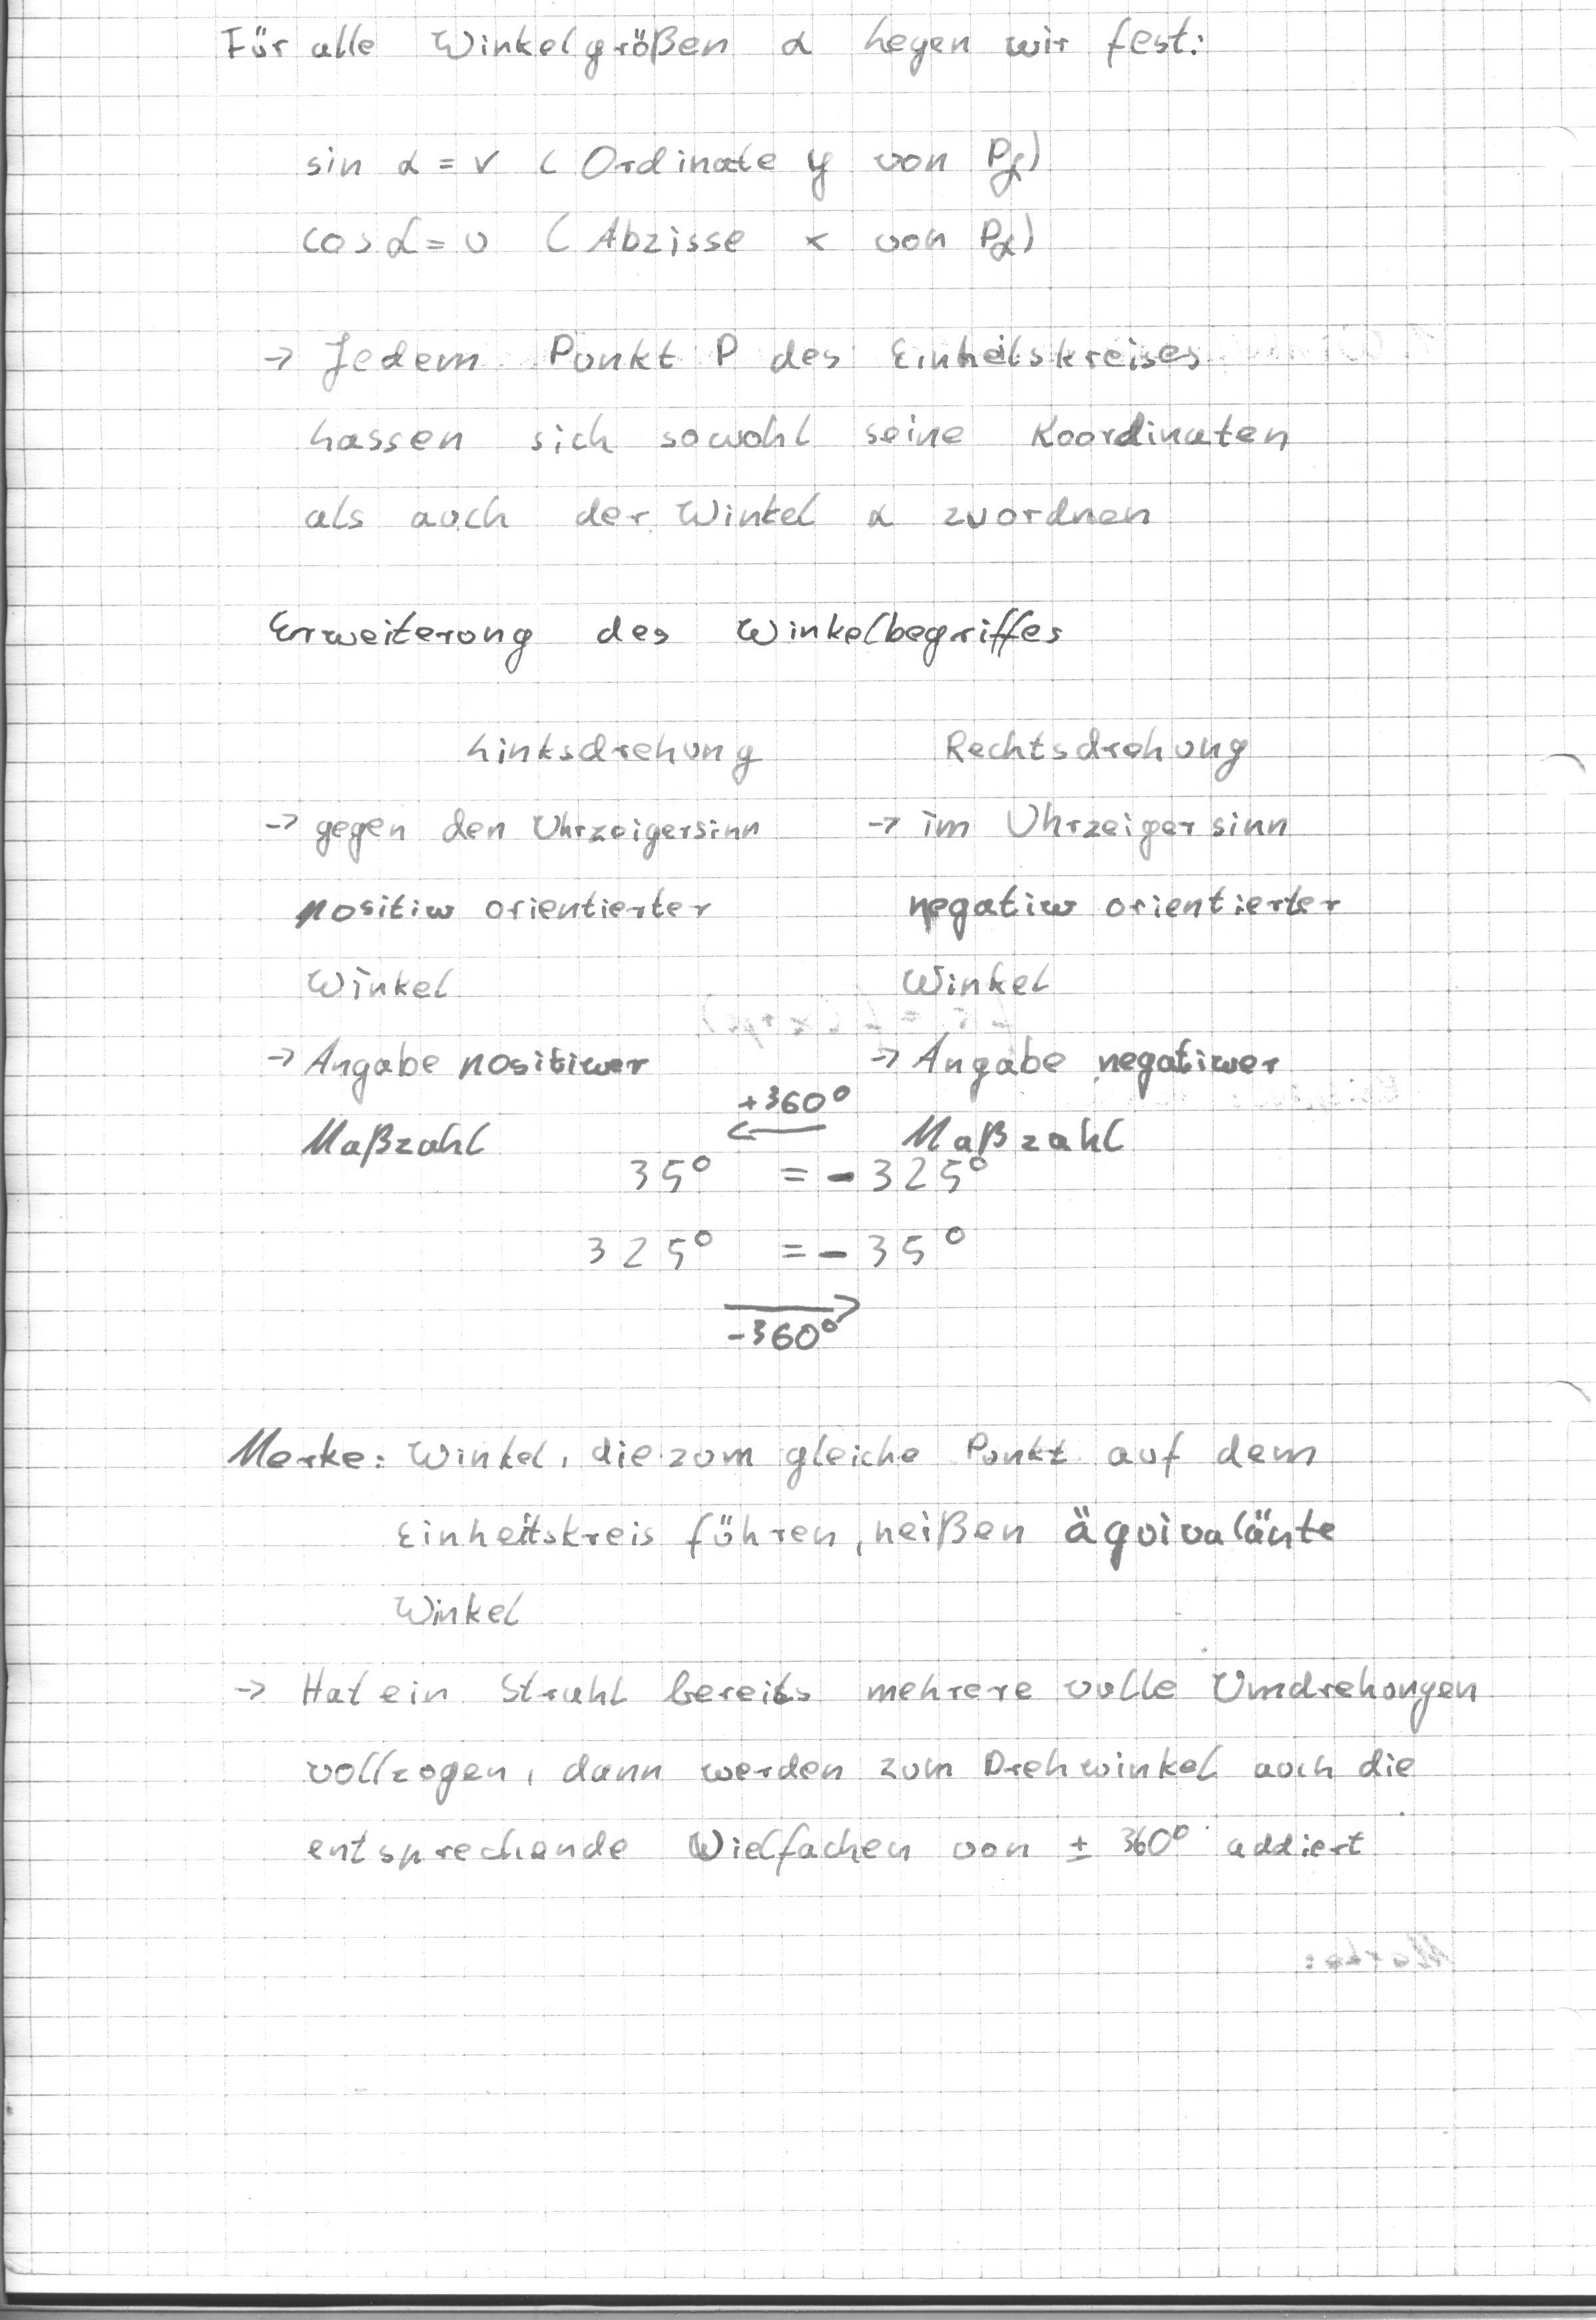 Für alle Winkelgrößen α legen wir fest:
sin α = v ( Ordinate y von Pα)
cos α = u ( Abzisse x von Pα)
→ Jedem Punkt P des Einheitskreises
lassen sich sowohl seine Koordinaten
als auch der Winkel α zuordnen
Erweiterung des Winkelbegriffes
Linksdrehung Rechtsdrehung
→ gegen den Uhrzeigersinn → im Uhrzeigersinn
positiw orientierter negatiw orientierter
Winkel Winkel
→ Angabe positiwer → Angabe negatiwer
+360°
←
Maßzahl Maßzahl
35° = - 325°
325° = - 35°
→
-360°
Merke: Winkel, die zum gleiche Punkt auf dem
Einheitskreis führen, heißen äquivalänte
Winkel
→ Hat ein Strahl bereits mehrere volle Umdrehungen
vollzogen, dann werden zum Drehwinkel auch die
entsprechende Wielfachen von ± 360° addiert